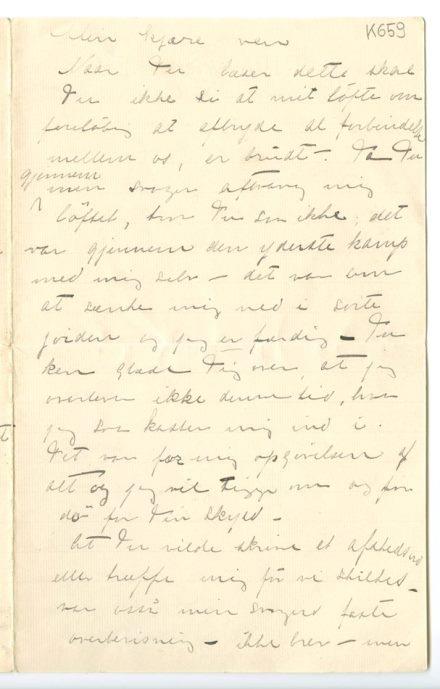 K659
Min kjære ven
Naar Du læser dette skal
Du ikke si at mit löfte om
foreløbig at afbryde al forbindelse
mellem os, er brudt –. Da Du
gjennem
min svoger aftvang mig
löftet, tror Du saa ikke, det
var gjennem den yderste kamp
med mig selv – det var som
at sænke mig ned i sorte
jorden og jeg er færdig – Du
kan glæde Dig over, at jeg
overlever ikke denne tid, hva
jeg saa kaster mig ind i.
Det var for mig opgivelsen af
alt og jeg vil tigge om og faa
dø for Din skyld –
At Du vilde skrive et afskedsord
eller træffe mig för vi skildtes –
var også min svogers faste
overbevisning – ikke brev – men